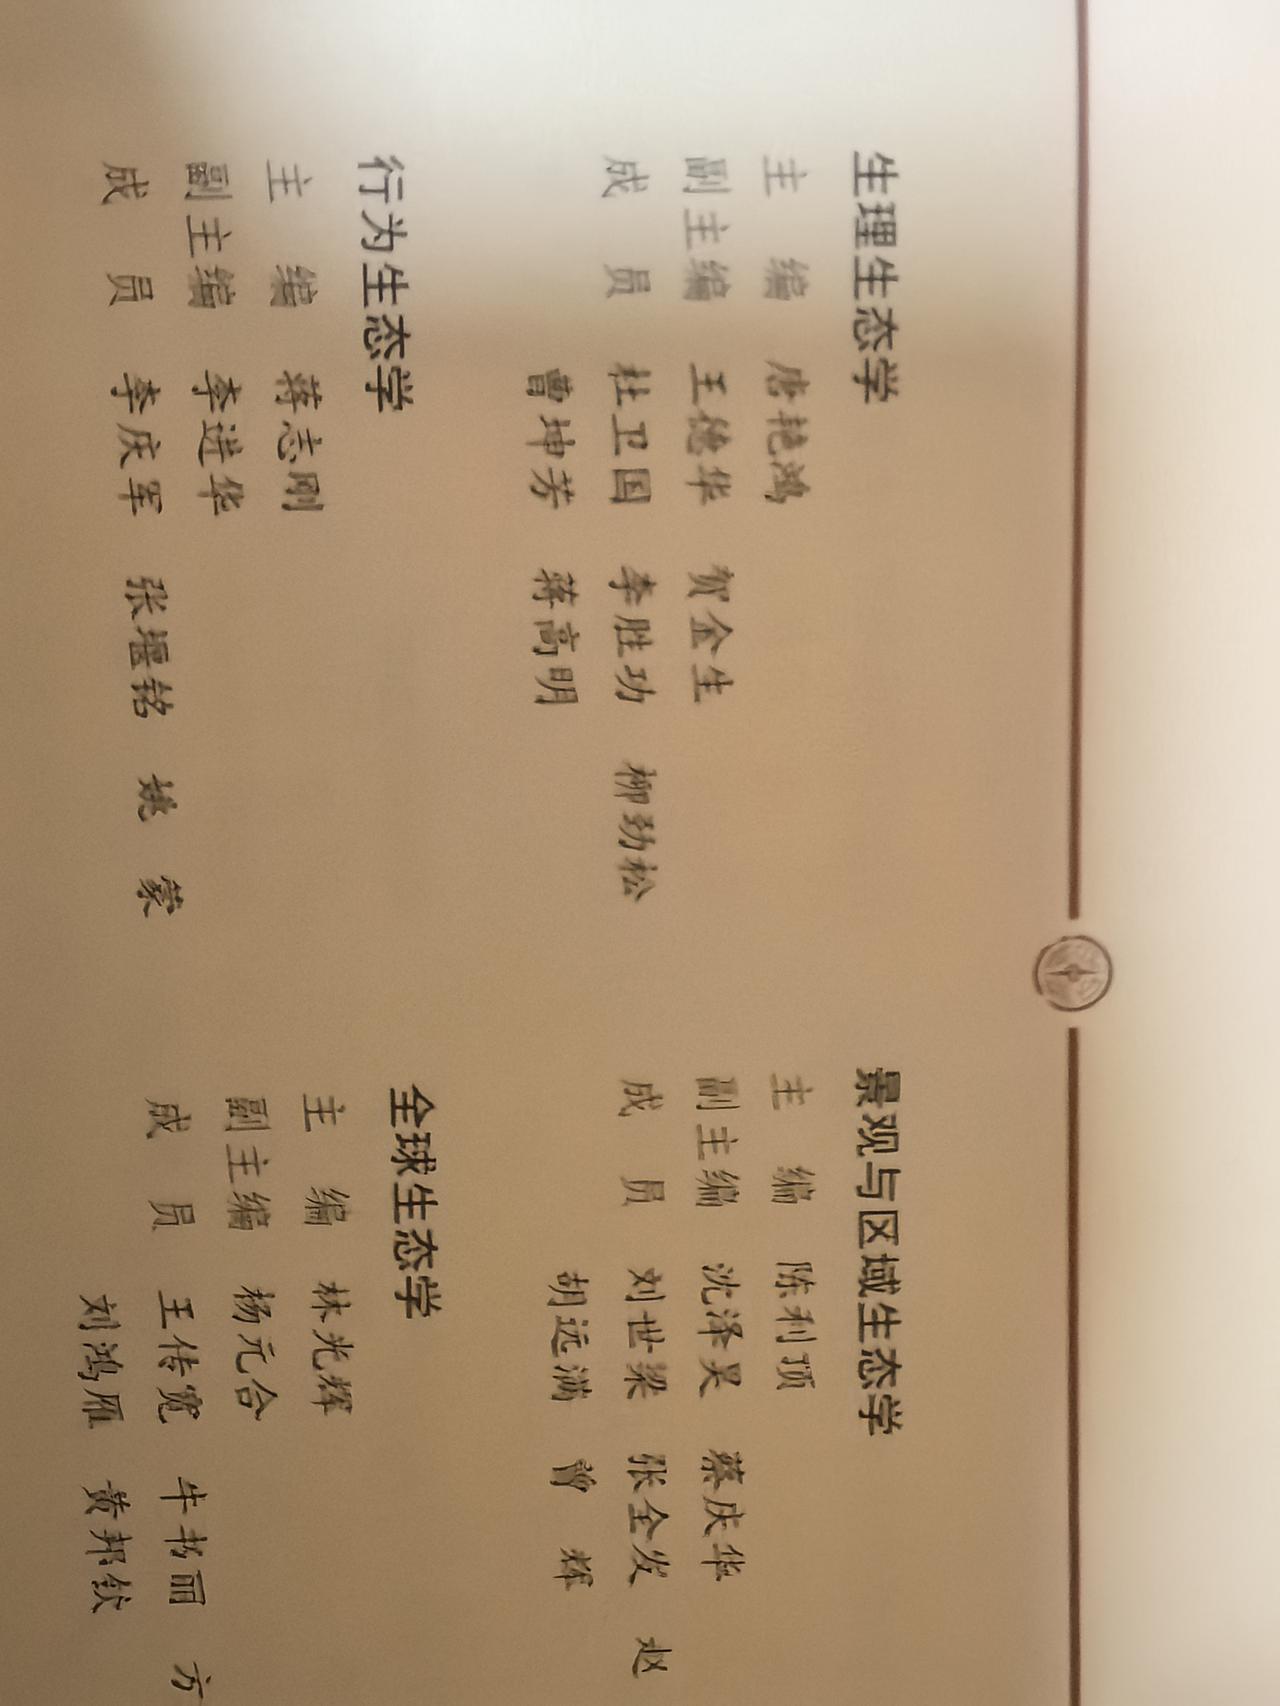 生理生态学
主 编 唐艳鸿
副主编 王德华 贺金生
成 员 杜卫国 李胜功 柳劲松
曹坤芳 蒋高明
行为生态学
主 编 蒋志刚
副主编 李进华
成 员 李庆军 张堰铭 姚 蒙
景观与区域生态学
主 编 陈利顶
副主编 沈泽昊 蔡庆华
成 员 刘世梁 张全发 赵
胡远满 曾 辉
全球生态学
主 编 林光辉
副主编 杨元合
成 员 王传宽 牛书丽 方
刘鸿雁 黄邦钦